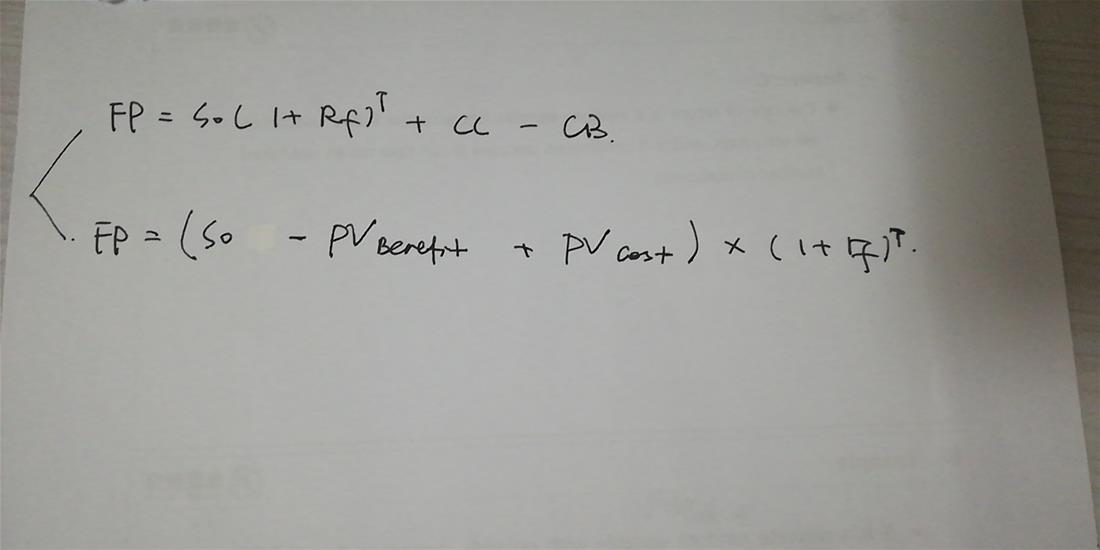 FP = S₀(1+Rf)ᵀ + CC - CB.
FP = (S₀ - PV Benefit + PV Cost) × (1+rf)ᵀ.